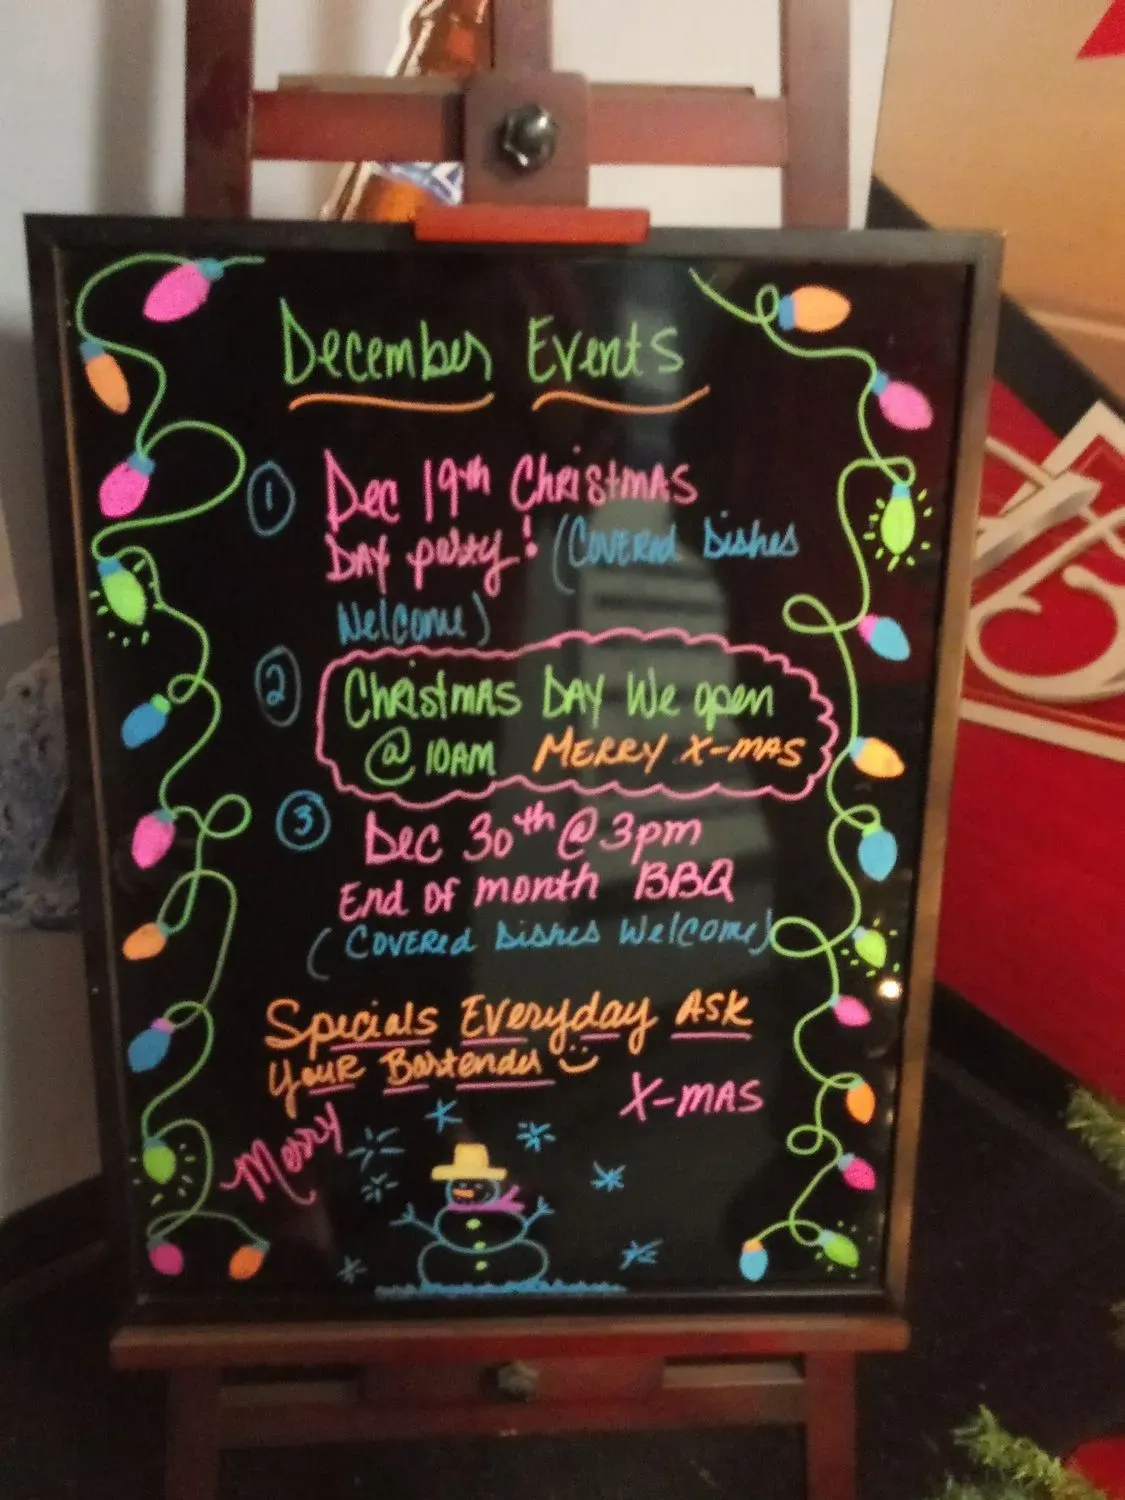 December Events
1 Dec 19th Christmas
Day party! (Covered Dishes
Welcome)
2 Christmas Day We open
@ 10AM Merry X-mas
3 Dec 30th @ 3pm
End of month BBQ
(Covered Dishes Welcome)
Specials Everyday Ask
Your Bartender
X-mas
Merry